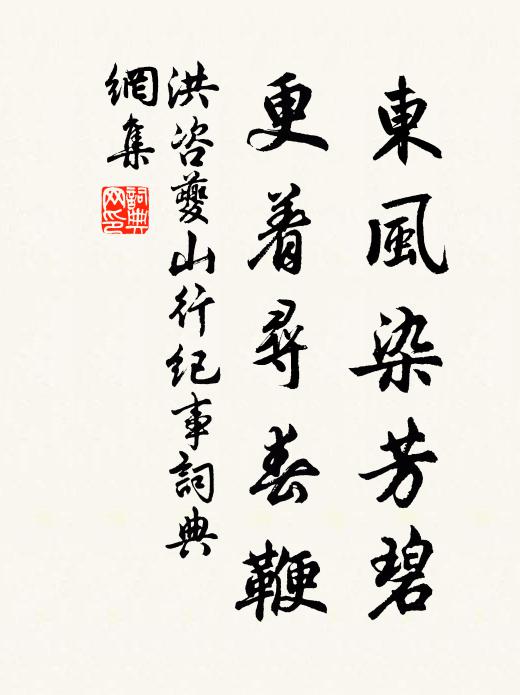 東風染芳碧
更着尋春鞭
洪咨夔山行纪事詞典
網集
詞典網印